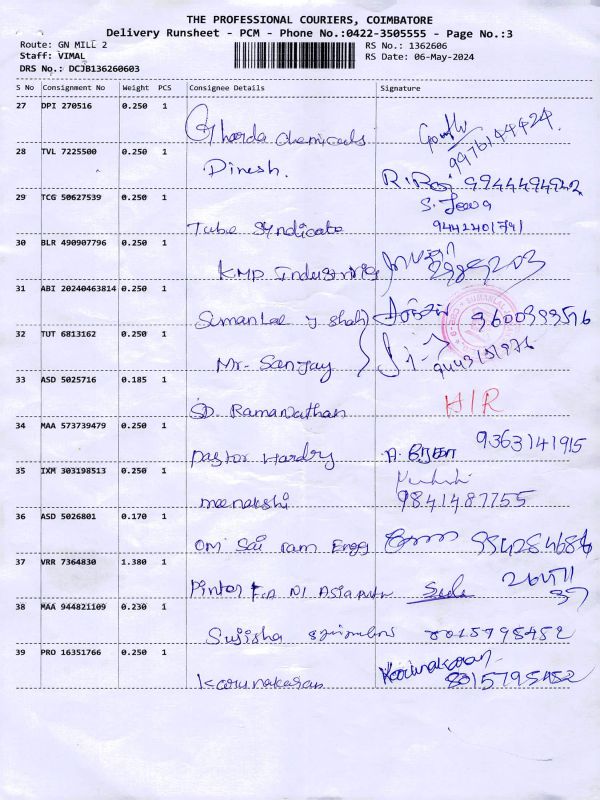 THE PROFESSIONAL COURIERS, COIMBATORE
Delivery Runsheet - PCM - Phone No.:0422-3505555 - Page No.:3
Route: GN MILL 2 RS No.: 1362606
Staff: VIMAL RS Date: 06-May-2024
DRS No.: DCJB136260603
S No Consignment No Weight PCS Consignee Details Signature
27 DPI 270516 0.250 1
Gharda Chemicals 9976144424.
28 TVL 7225500 0.250 1
Dinesh. R. Raj 9944494942
29 TCG 50627539 0.250 1 S. Jeeva
Tube Syndicate 9442401791
30 BLR 490907796 0.250 1
KMP Industries
31 ABI 20240463814 0.250 1
Sumanlal J Shah 9600399516
32 TUT 6813162 0.250 1
Mr. Sanjay 9443151976
33 ASD 5025716 0.185 1
SD. Ramanathan H/R
34 MAA 573739479 0.250 1
pastor Hardry 9363141915
35 IXM 303198513 0.250 1
meenakshi 9841487755
36 ASD 5026801 0.170 1
Om Sai ram Engg
37 VRR 7364830 1.380 1
38 MAA 944821109 0.230 1
Sujisha 8015795452
39 PRO 16351766 0.250 1
Karunakaran Karunakaran
8015795452